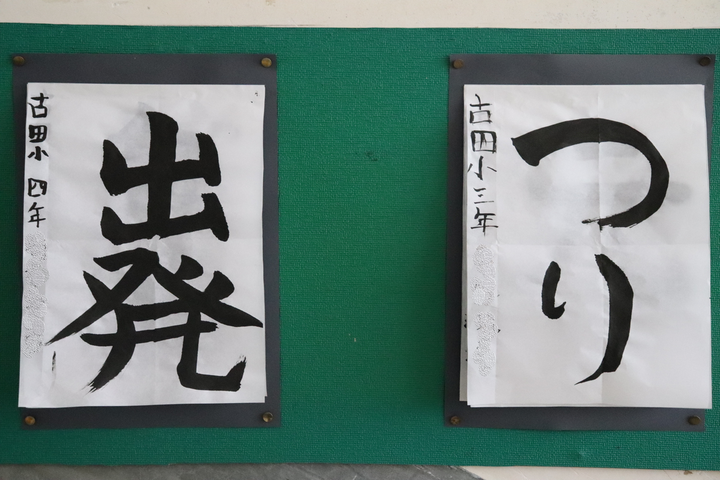 出発
古四小 四年
つり
古四小三年